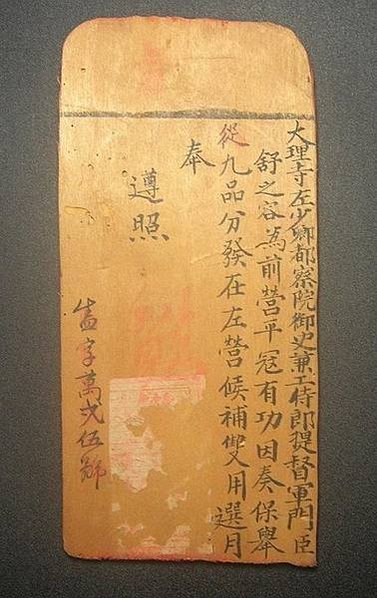 大理寺左少卿都察院御史兼工侍郎提督軍門臣
舒之容為前營平冦有功因奏保舉
從九品分發在左營候補雙用選月
奉
遵照
字萬弍伍號